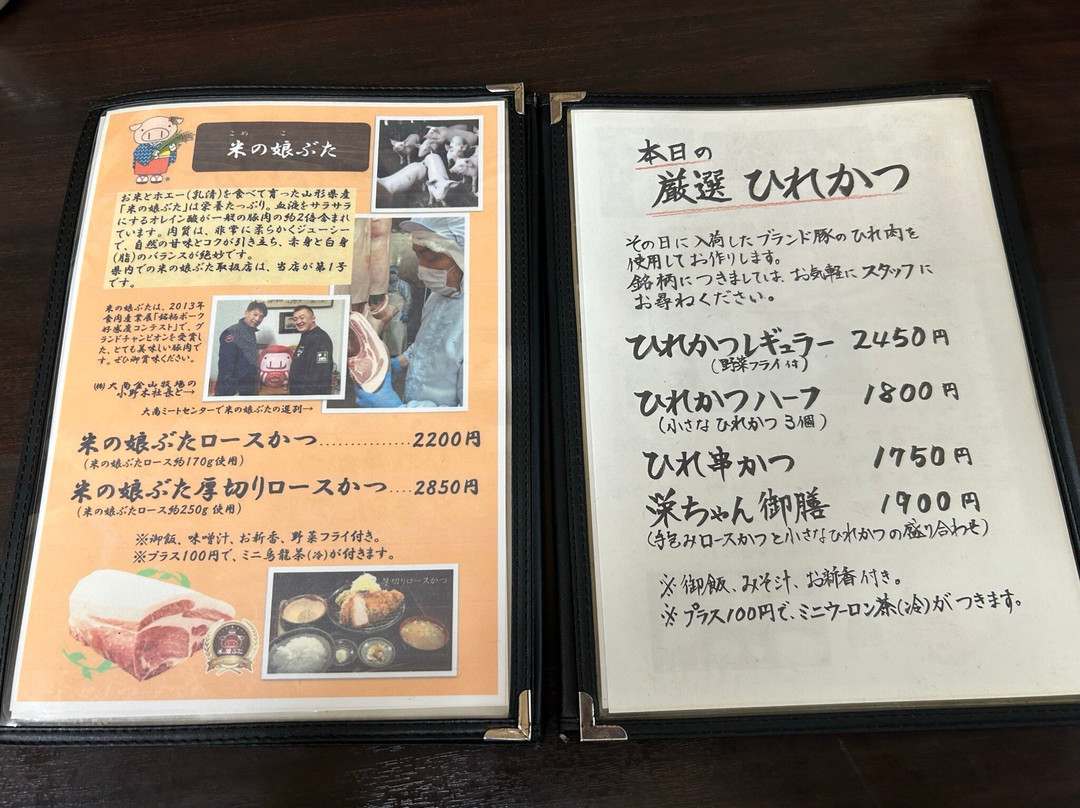 こめ こ
米の娘ぶた
お米とホエー(乳清)を食べて育った山形県産
「米の娘ぶた」は栄養たっぷり。血液をサラサラ
にするオレイン酸が一般の豚肉の約2倍含まれ
ています。肉質は、非常に柔らかくジューシー
で、自然の甘味とコクが引き立ち、赤身と白身
(脂)のバランスが絶妙です。
県内での米の娘ぶた取扱店は、当店が第1号
です。
米の娘ぶたは、2013年
食肉産業展「銘柄ポーク
好感度コンテスト」で、グ
ランドチャンピオンを受賞し
た、とても美味しい豚肉で
す。ぜひ御賞味ください。
㈱大商金山牧場の
小野木社長と→
大商ミートセンターで米の娘ぶたの選別→
米の娘ぶたロースかつ……………2200円
(米の娘ぶたロース約170g使用)
米の娘ぶた厚切りロースかつ….2850円
(米の娘ぶたロース約250g使用)
※御飯、味噌汁、お新香、野菜フライ付き。
※プラス100円で、ミニ烏龍茶(冷)が付きます。
厚切りロースかつ
米の娘ぶた
本日の
厳選 ひれかつ
その日に入荷したブランド豚のひれ肉を
使用してお作りします。
銘柄につきましては、お気軽にスタッフに
お尋ねください。
ひれかつレギュラー 2450円
(野菜フライ付)
ひれかつハーフ 1800円
(小さなひれかつ3個)
ひれ串かつ 1750円
栄ちゃん御膳 1900円
(手包みロースかつと小さなひれかつの盛り合わせ)
※御飯、みそ汁、お新香付き。
※プラス100円で、ミニウーロン茶(冷)がつきます。